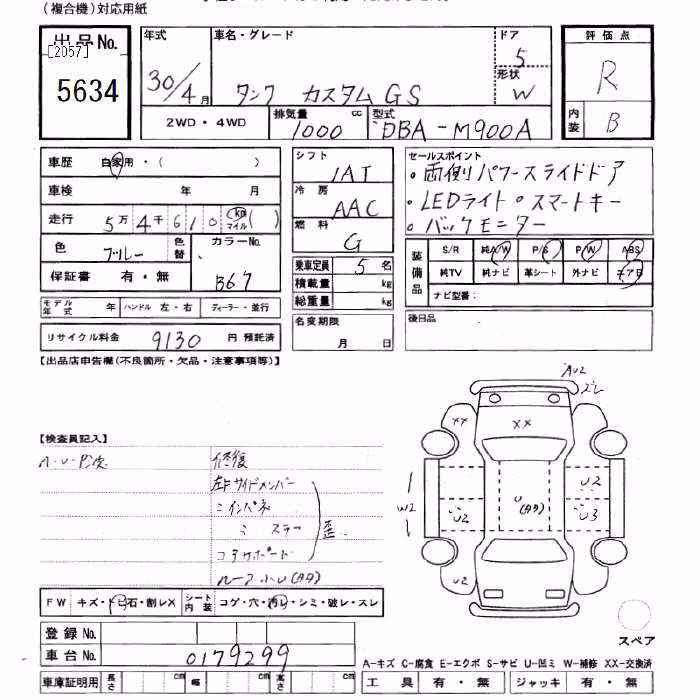 (複合機)対応用紙
出品No.
[2057]
5634
年式
30/4月
車名・グレード
タンク カスタムGS
ドア
5
形状
W
評価点
R
内装
B
2WD・4WD
排気量
1000 cc
型式
DBA-M900A
車歴 自家用・( )
車検 年 月
走行 5万4千610 km マイル( )
色 ブルー
色替
カラーNo.
B67
保証書 有・無
モデル年式 年 ハンドル 左・右 ディーラー・並行
リサイクル料金 9130 円 預託済
シフト
IAT
冷房
AAC
燃料
G
乗車定員 5 名
積載量 kg
総重量 kg
名変期限
月 日
セールスポイント
・両側パワースライドドア
・LEDライト・スマートキー
・バックモニター
装備品
S/R 純A/W P/S P/W ABS
純TV 純ナビ 革シート 外ナビ エアB
ナビ型番:
後日品
【出品店申告欄(不良箇所・欠品・注意事項等)】
【検査員記入】
A・U・
修復
左Fサイドメンバー
〃インパネ
〃 ステー
コアサポート
歪
ルーフ小U(タタ)
AU2
ズレ
XX
XX
W2
U2
U
(タタ)
U2
U3
U2
スペア
FW キズ・トビ石・割レX
シート内装 コゲ・穴・汚レ・シミ・破レ・スレ
登録No.
車台No. 0179299
車庫証明用 長さ cm 幅 cm 高さ cm
A-キズ C-腐食 E-エクボ S-サビ U-凹ミ W-補修 XX-交換済
工具 有・無 ジャッキ 有・無